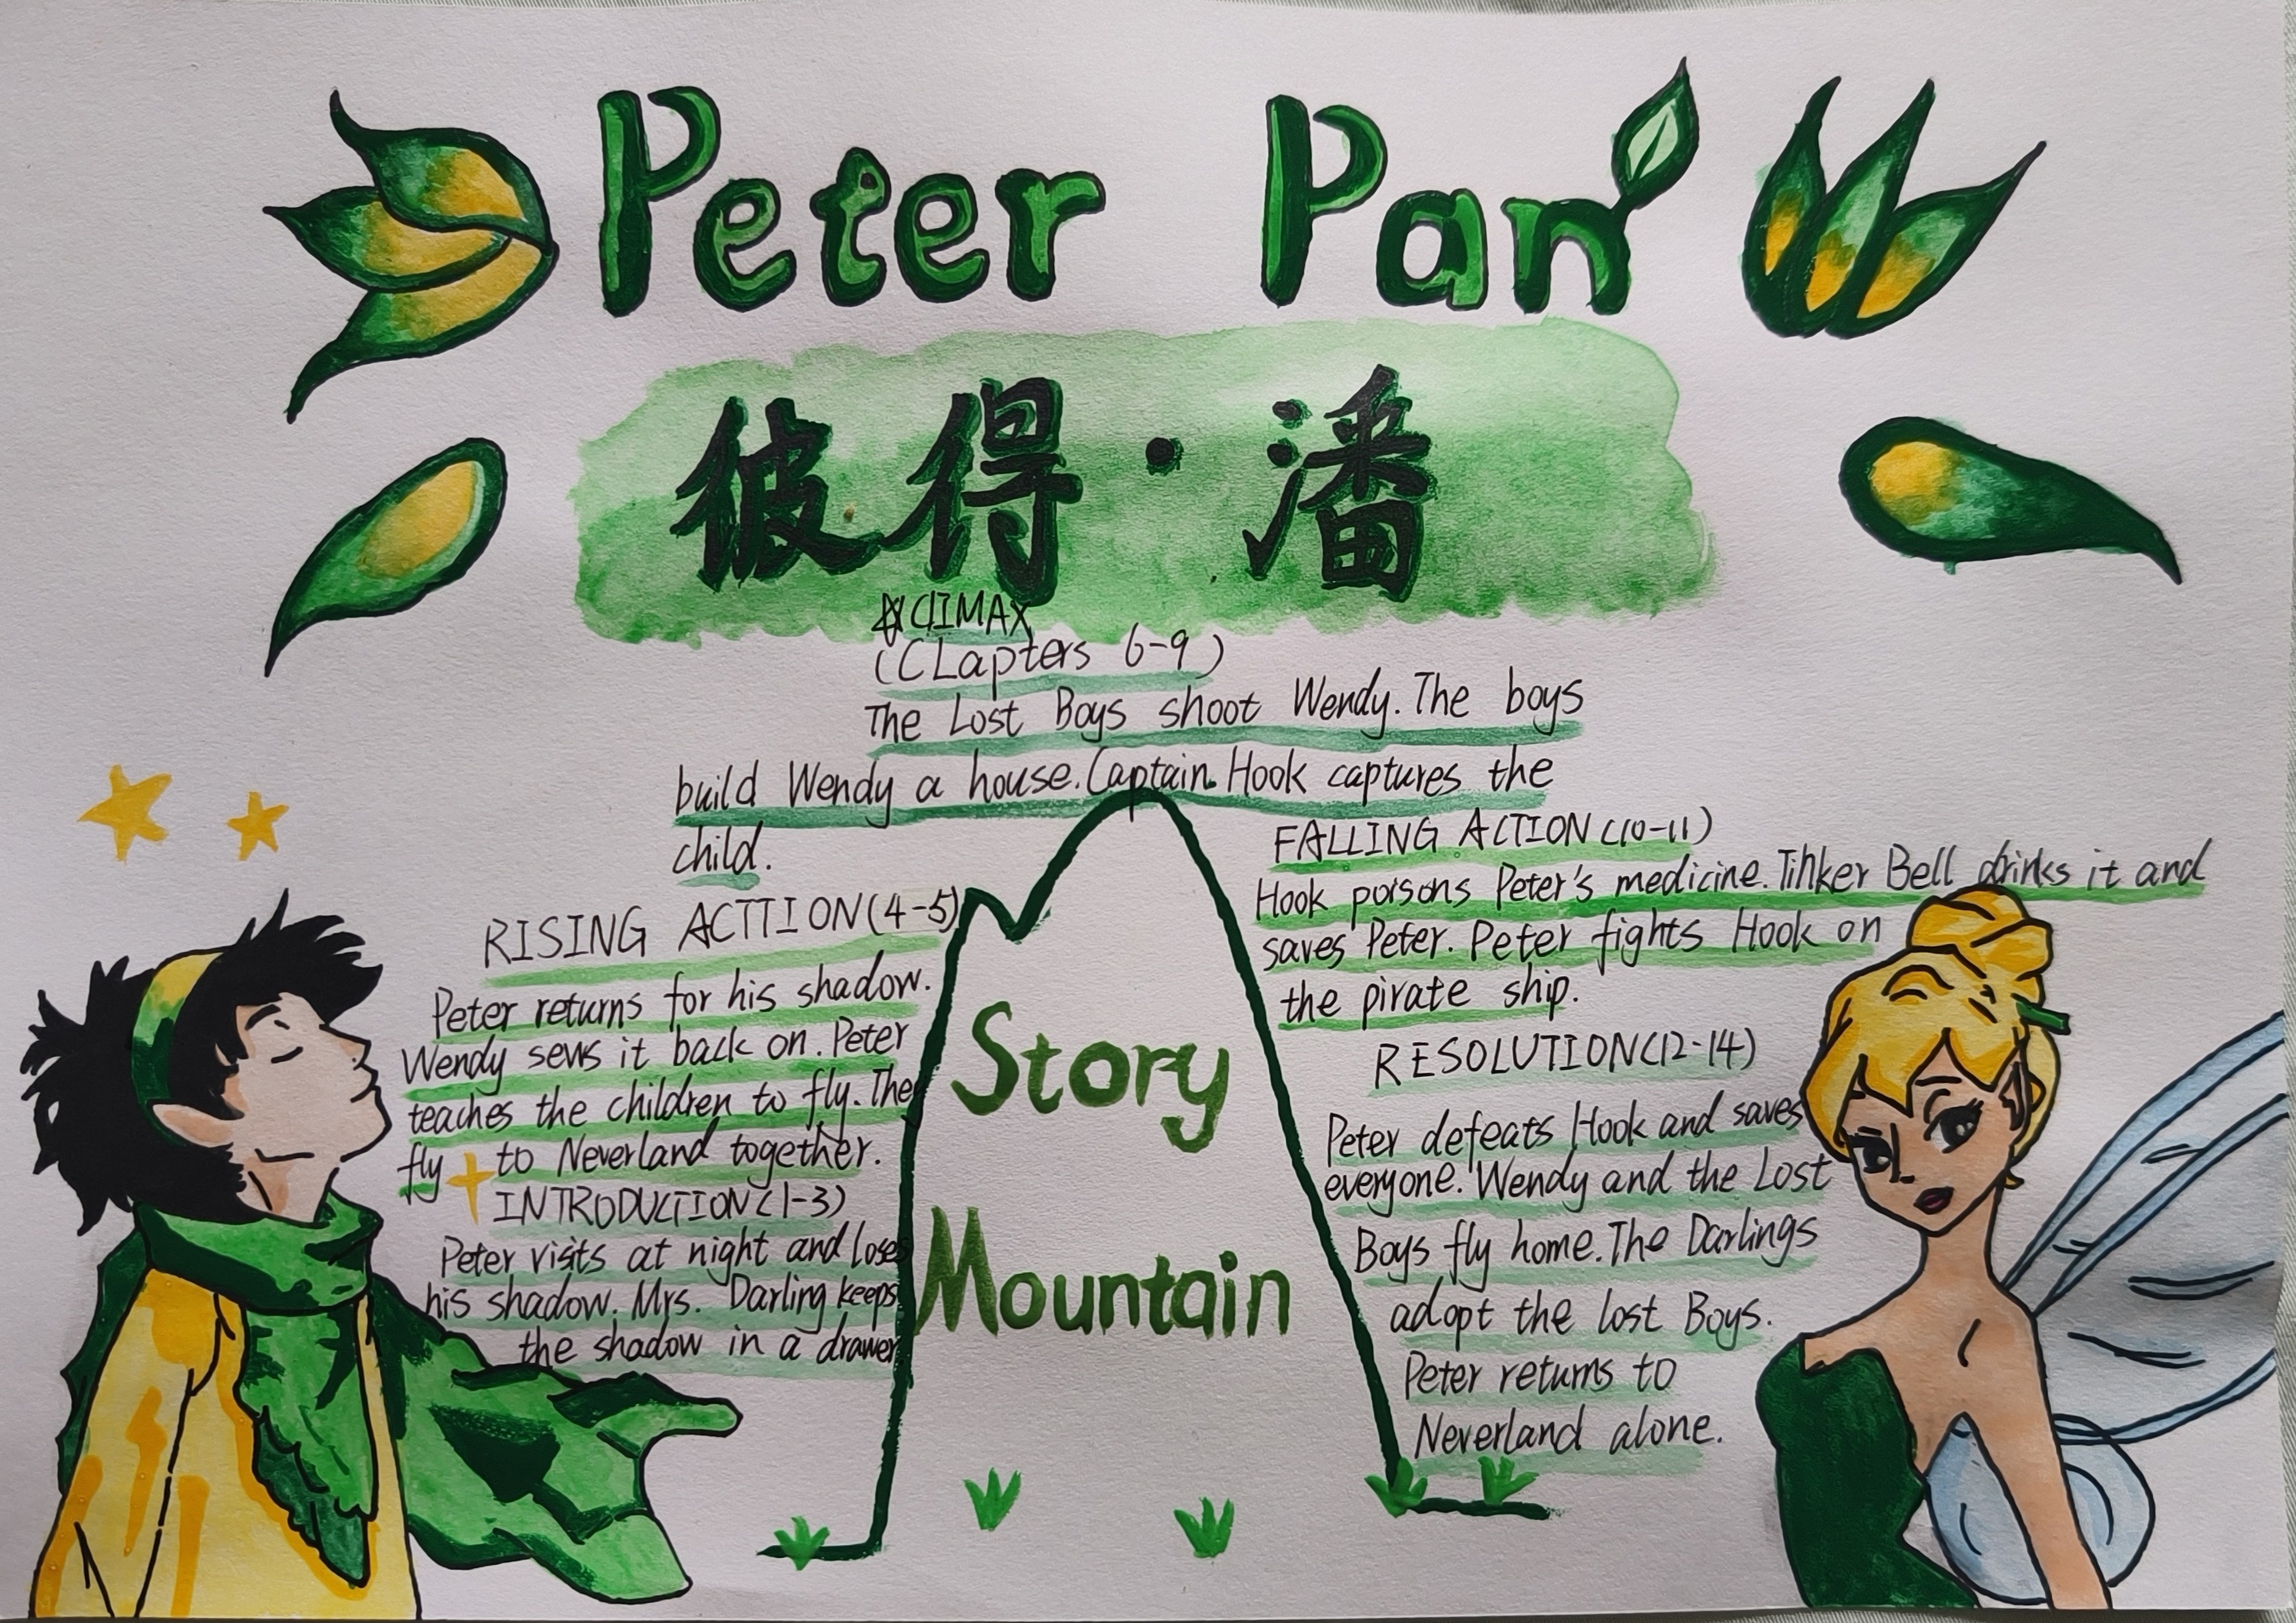 Peter Pan
彼得·潘
CLIMAX
(CLapters 6-9)
The Lost Boys shoot Wendy. The boys
build Wendy a house. Captain Hook captures the
child.
RISING ACTTION(4-5)
Peter returns for his shadow.
Wendy sews it back on. Peter
teaches the children to fly. The
fly to Neverland together.
INTRODUCTION(1-3)
Peter visits at night and loses
his shadow. Mrs. Darling keeps
the shadow in a drawer
Story
Mountain
FALLING ACTION(10-11)
Hook poisons Peter's medicine. Tinker Bell drinks it and
saves Peter. Peter fights Hook on
the pirate ship.
RESOLUTION(12-14)
Peter defeats Hook and saves
everyone. Wendy and the Lost
Boys fly home. The Darlings
adopt the lost Boys.
Peter returns to
Neverland alone.